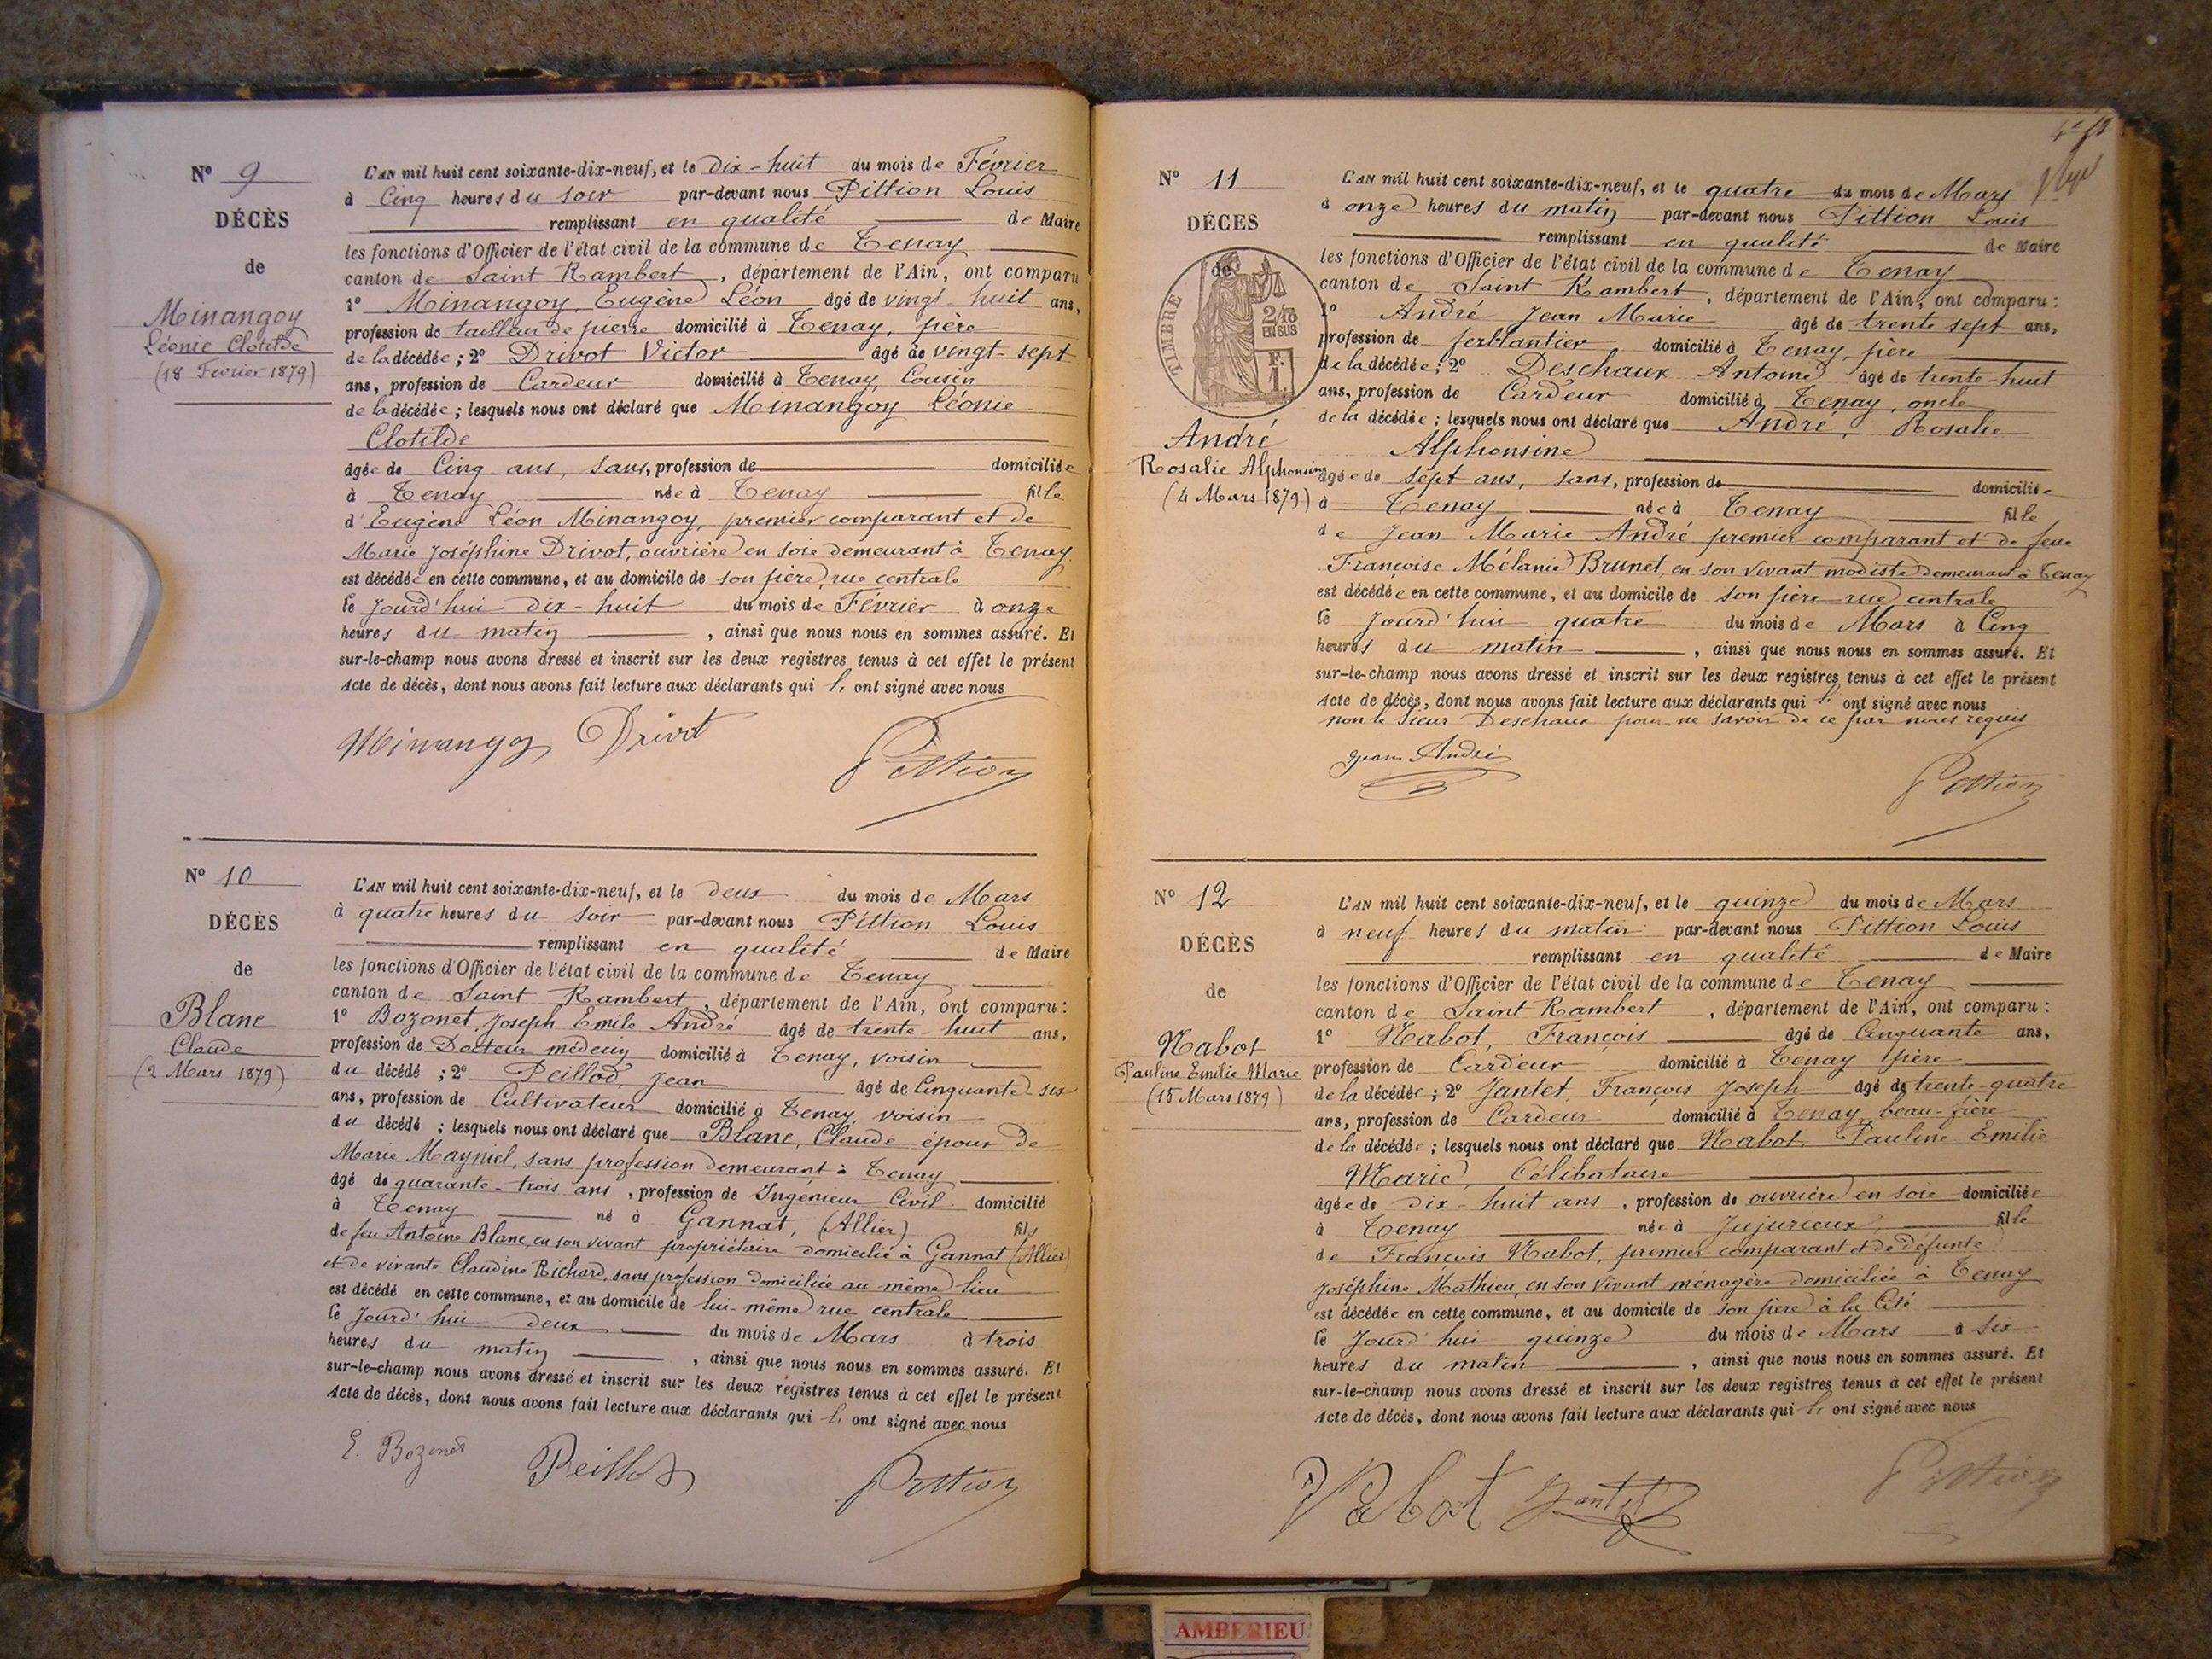 Nº 9
DÉCÈS
de
Minangoy
Léonie Clotilde
(18 Février 1879)
L'AN mil huit cent soixante-dix-neuf, et le dix-huit du mois de Février
à Cinq heures du soir par-devant nous Pittion Louis
remplissant en qualité de Maire
les fonctions d'Officier de l'état civil de la commune de Tenay
canton de Saint Rambert, département de l'Ain, ont comparu
1º Minangoy, Eugène Léon âgé de vingt-huit ans,
profession de tailleur de pierre domicilié à Tenay, père
de la décédée ; 2º Drivot Victor âgé de vingt-sept
ans, profession de Cardeur domicilié à Tenay, Cousin
de la décédée ; lesquels nous ont déclaré que Minangoy Léonie
Clotilde
âgée de Cinq ans, sans, profession de domiciliée
à Tenay née à Tenay fille
d'Eugène Léon Minangoy, premier comparant et de
Marie Joséphine Drivot, ouvrière en soie demeurant à Tenay
est décédée en cette commune, et au domicile de son père, rue centrale
le jourd'hui dix-huit du mois de Février à onze
heures du matin, ainsi que nous nous en sommes assuré. Et
sur-le-champ nous avons dressé et inscrit sur les deux registres tenus à cet effet le présent
Acte de décès, dont nous avons fait lecture aux déclarants qui l' ont signé avec nous
Minangoy Drivot Pittion
Nº 10
DÉCÈS
de
Blanc
Claude
(2 Mars 1879)
L'AN mil huit cent soixante-dix-neuf, et le deux du mois de Mars
à quatre heures du soir par-devant nous Pittion Louis
remplissant en qualité de Maire
les fonctions d'Officier de l'état civil de la commune de Tenay
canton de Saint Rambert, département de l'Ain, ont comparu :
1º Bozonet, Joseph Emile André âgé de trente-huit ans,
profession de Docteur médecin domicilié à Tenay, voisin
du décédé ; 2º Peillod, Jean âgé de Cinquante six
ans, profession de Cultivateur domicilié à Tenay, voisin
du décédé ; lesquels nous ont déclaré que Blanc, Claude époux de
Marie Mayniel, sans profession demeurant à Tenay
âgé de quarante-trois ans, profession de Ingénieur Civil domicilié
à Tenay né à Gannat, (Allier) fils
de feu Antoine Blanc, en son vivant propriétaire domicilié à Gannat (Allier)
et de vivante Claudine Richard, sans profession domiciliée au même lieu
est décédé en cette commune, et au domicile de lui-même rue centrale
le jourd'hui deux du mois de Mars à trois
heures du matin, ainsi que nous nous en sommes assuré. Et
sur-le-champ nous avons dressé et inscrit sur les deux registres tenus à cet effet le présent
Acte de décès, dont nous avons fait lecture aux déclarants qui l' ont signé avec nous
E. Bozonet Peillod Pittion
Nº 11
DÉCÈS
de
TIMBRE
2/10
EN SUS
F.
1.
André
Rosalie Alphonsine
(4 Mars 1879)
L'AN mil huit cent soixante-dix-neuf, et le quatre du mois de Mars
à onze heures du matin par-devant nous Pittion Louis
remplissant en qualité de Maire
les fonctions d'Officier de l'état civil de la commune de Tenay
canton de Saint Rambert, département de l'Ain, ont comparu :
1º André Jean Marie âgé de trente sept ans,
profession de ferblantier domicilié à Tenay, père
de la décédée ; 2º Deschaux Antoine âgé de trente-huit
ans, profession de Cardeur domicilié à Tenay, oncle
de la décédée ; lesquels nous ont déclaré que André, Rosalie
Alphonsine
âgée de sept ans, sans, profession de domiciliée
à Tenay née à Tenay fille
de Jean Marie André premier comparant et de feue
Françoise Mélanie Brunet, en son vivant modiste demeurant à Tenay
est décédée en cette commune, et au domicile de son père rue centrale
le jourd'hui quatre du mois de Mars à Cinq
heures du matin, ainsi que nous nous en sommes assuré. Et
sur-le-champ nous avons dressé et inscrit sur les deux registres tenus à cet effet le présent
Acte de décès, dont nous avons fait lecture aux déclarants qui l' ont signé avec nous
non le sieur Deschaux pour ne savoir de ce par nous requis
Jean André Pittion
Nº 12
DÉCÈS
de
Nabot
Pauline Emilie Marie
(15 Mars 1879)
L'AN mil huit cent soixante-dix-neuf, et le quinze du mois de Mars
à neuf heures du matin par-devant nous Pittion Louis
remplissant en qualité de Maire
les fonctions d'Officier de l'état civil de la commune de Tenay
canton de Saint Rambert, département de l'Ain, ont comparu :
1º Nabot, François âgé de Cinquante ans,
profession de Cardeur domicilié à Tenay père
de la décédée ; 2º Jantet, François Joseph âgé de trente-quatre
ans, profession de Cardeur domicilié à Tenay, beau-frère
de la décédée ; lesquels nous ont déclaré que Nabot, Pauline Emilie
Marie, Célibataire
âgée de dix-huit ans, profession de ouvrière en soie domiciliée
à Tenay née à Jujurieux, fille
de François Nabot, premier comparant et de défunte
Joséphine Mathieu, en son vivant ménagère domiciliée à Tenay
est décédée en cette commune, et au domicile de son père à la Cité
le jourd'hui quinze du mois de Mars à six
heures du matin, ainsi que nous nous en sommes assuré. Et
sur-le-champ nous avons dressé et inscrit sur les deux registres tenus à cet effet le présent
Acte de décès, dont nous avons fait lecture aux déclarants qui l' ont signé avec nous
Nabot Jantet Pittion
AMBERIEU